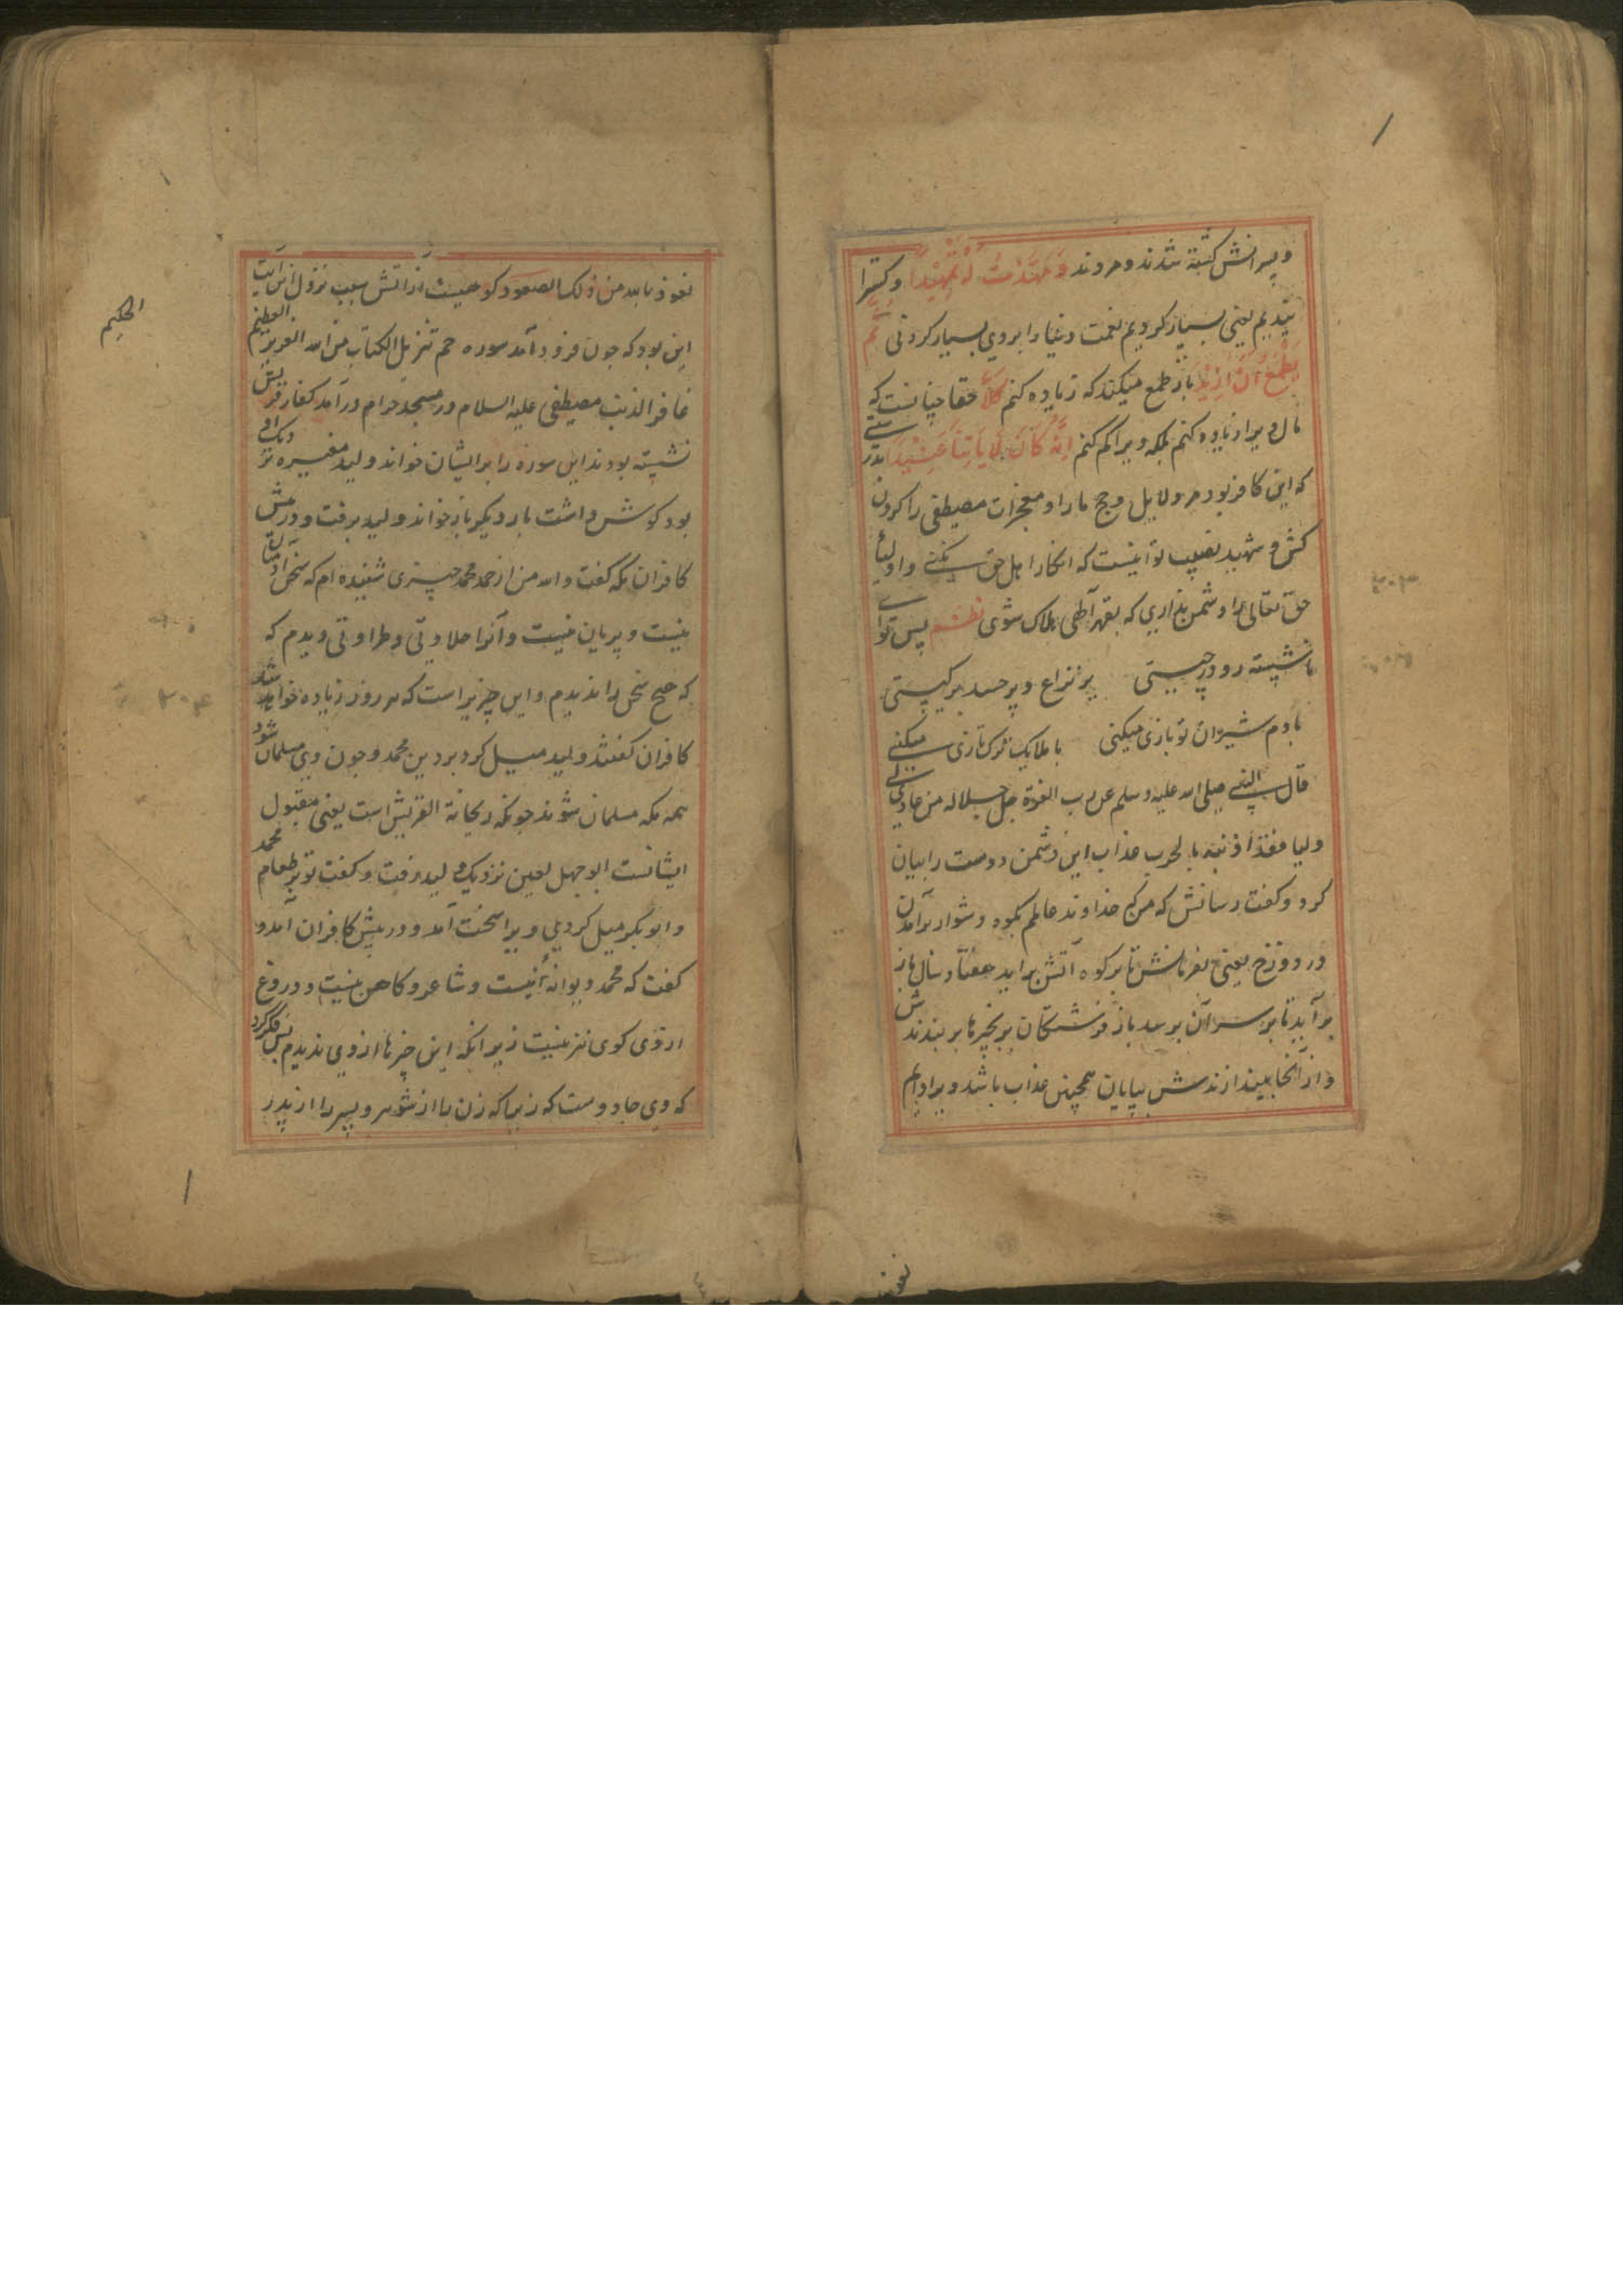 و پسرانش کشته شدند و مردند وَمَهَّدْتُ لَهُ تَمْهِيْدًا و کسترا
نیدیم یعنی بسیار کردیم نعمت دنیا را بروی بسیار کردنی ثُمَّ
يَطْمَعُ اَنْ اَزِيْدَ باز طمع میکند که زیاده کنم كَلَّا حقا چنانست که
مال ویرا زیاده کنم بلکه ویرا کم کنم اِنَّهُ كَانَ لِاٰيَاتِنَا عَنِيْدًا بدرستی
که این کافر بود مر دلایل و حجج ما را و معجزات مصطفی را کردن
کش و شهید نصیب تو اینست که انکار اهل حق نکنی و اولیأ
حق تعالی را دشمن نداری که بقهر آطهی هلاک شوی نظم پس تو ای
ناشسته رو در چیستی پر نزاع و پر حسد بر کیستی
با دم شیران تو بازی میکنی با ملایک ترک تازی میکنی
قال النبی صلی الله علیه وسلم عن رب العزة جل جلاله من عادی لی
ولیا فقد اذنته بالحرب عذاب این دشمن دوست را بیان
کرد و کفت رسانش که من که خداوند عالمم بکوه دشوار برآمدن
در دوزخ یعنی بفرمانش تا بر کوه آتش برآید هفتاد سال باز
برآید تا بر سر آن برسد باز فرشتکان بزنجیرها بر بندندش
و از آنجا بیندازندش بپایان همچنین عذاب باشد ویرا دایم
نعوذ بالله من ذلک الصعود کوهیست از آتش سبب نزول این آیت
این بود که چون فرود آمد سوره حم تنزیل الکتاب من الله العزیز العظیم
الحکیم
غافر الذنب مصطفی علیه السلام در مسجد حرام درآمد کفار قریش
نشسته بودند این سوره را بر ایشان خواند ولید مغیره نزدیک او
بود کوش داشت بار دیکر باز خواند ولید برفت و در پیش
کافران مکه کفت والله من از محمد چیزی شنیده ام که سخن آدمیان
نیست و پریان نیست و آنرا حلاوتی و طراوتی دیدم که
که هیچ سخن را ندیدم و این چیزیراست که هر روز زیاده خواهد شد
کافران کفتند ولید میل کرد بر دین محمد و چون وی مسلمان شود
همه مکه مسلمان شوند چونکه ریحانة القریش است یعنی مقبول
ایشانست ابو جهل لعین نزدیک ولید رفت و کفت تو بر طعام محمد
و ابوبکر میل کردی ویرا سخت آمد و در پیش کافران آمد و
کفت که محمد دیوانهٔ نیست و شاعر و کاهن نیست و دروغ
کوی نیز نیست زیرا نکه این چیزها از وی ندیدم پس فکر کرد
که وی جادوست که زیرا که زن را از شوهر و پسر را از پدر